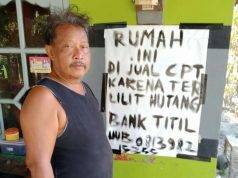 RUMAH
INI
DI JUAL CPT
KARENA TER
LILIT HUTANG
BANK TITIL